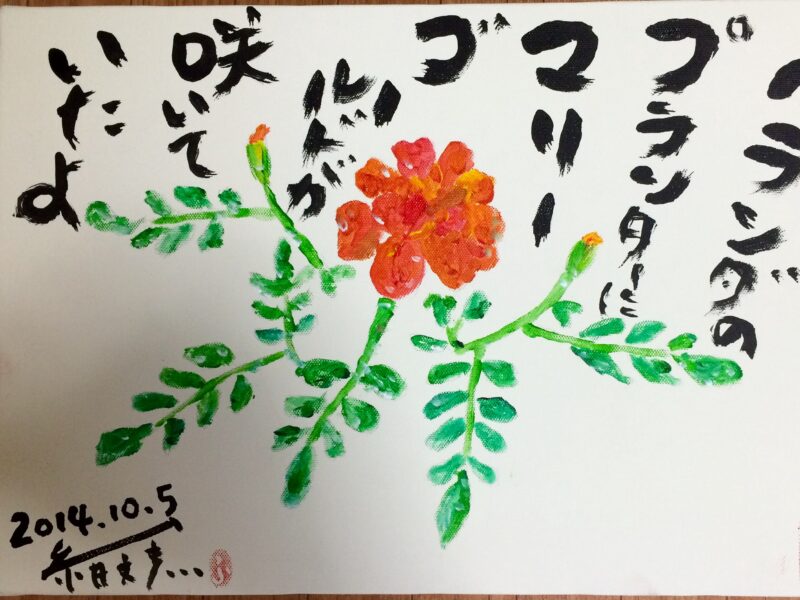 ベランダの
プランターに
マリー
ゴ
ルドが
咲いて
いたよ
2014.10.5